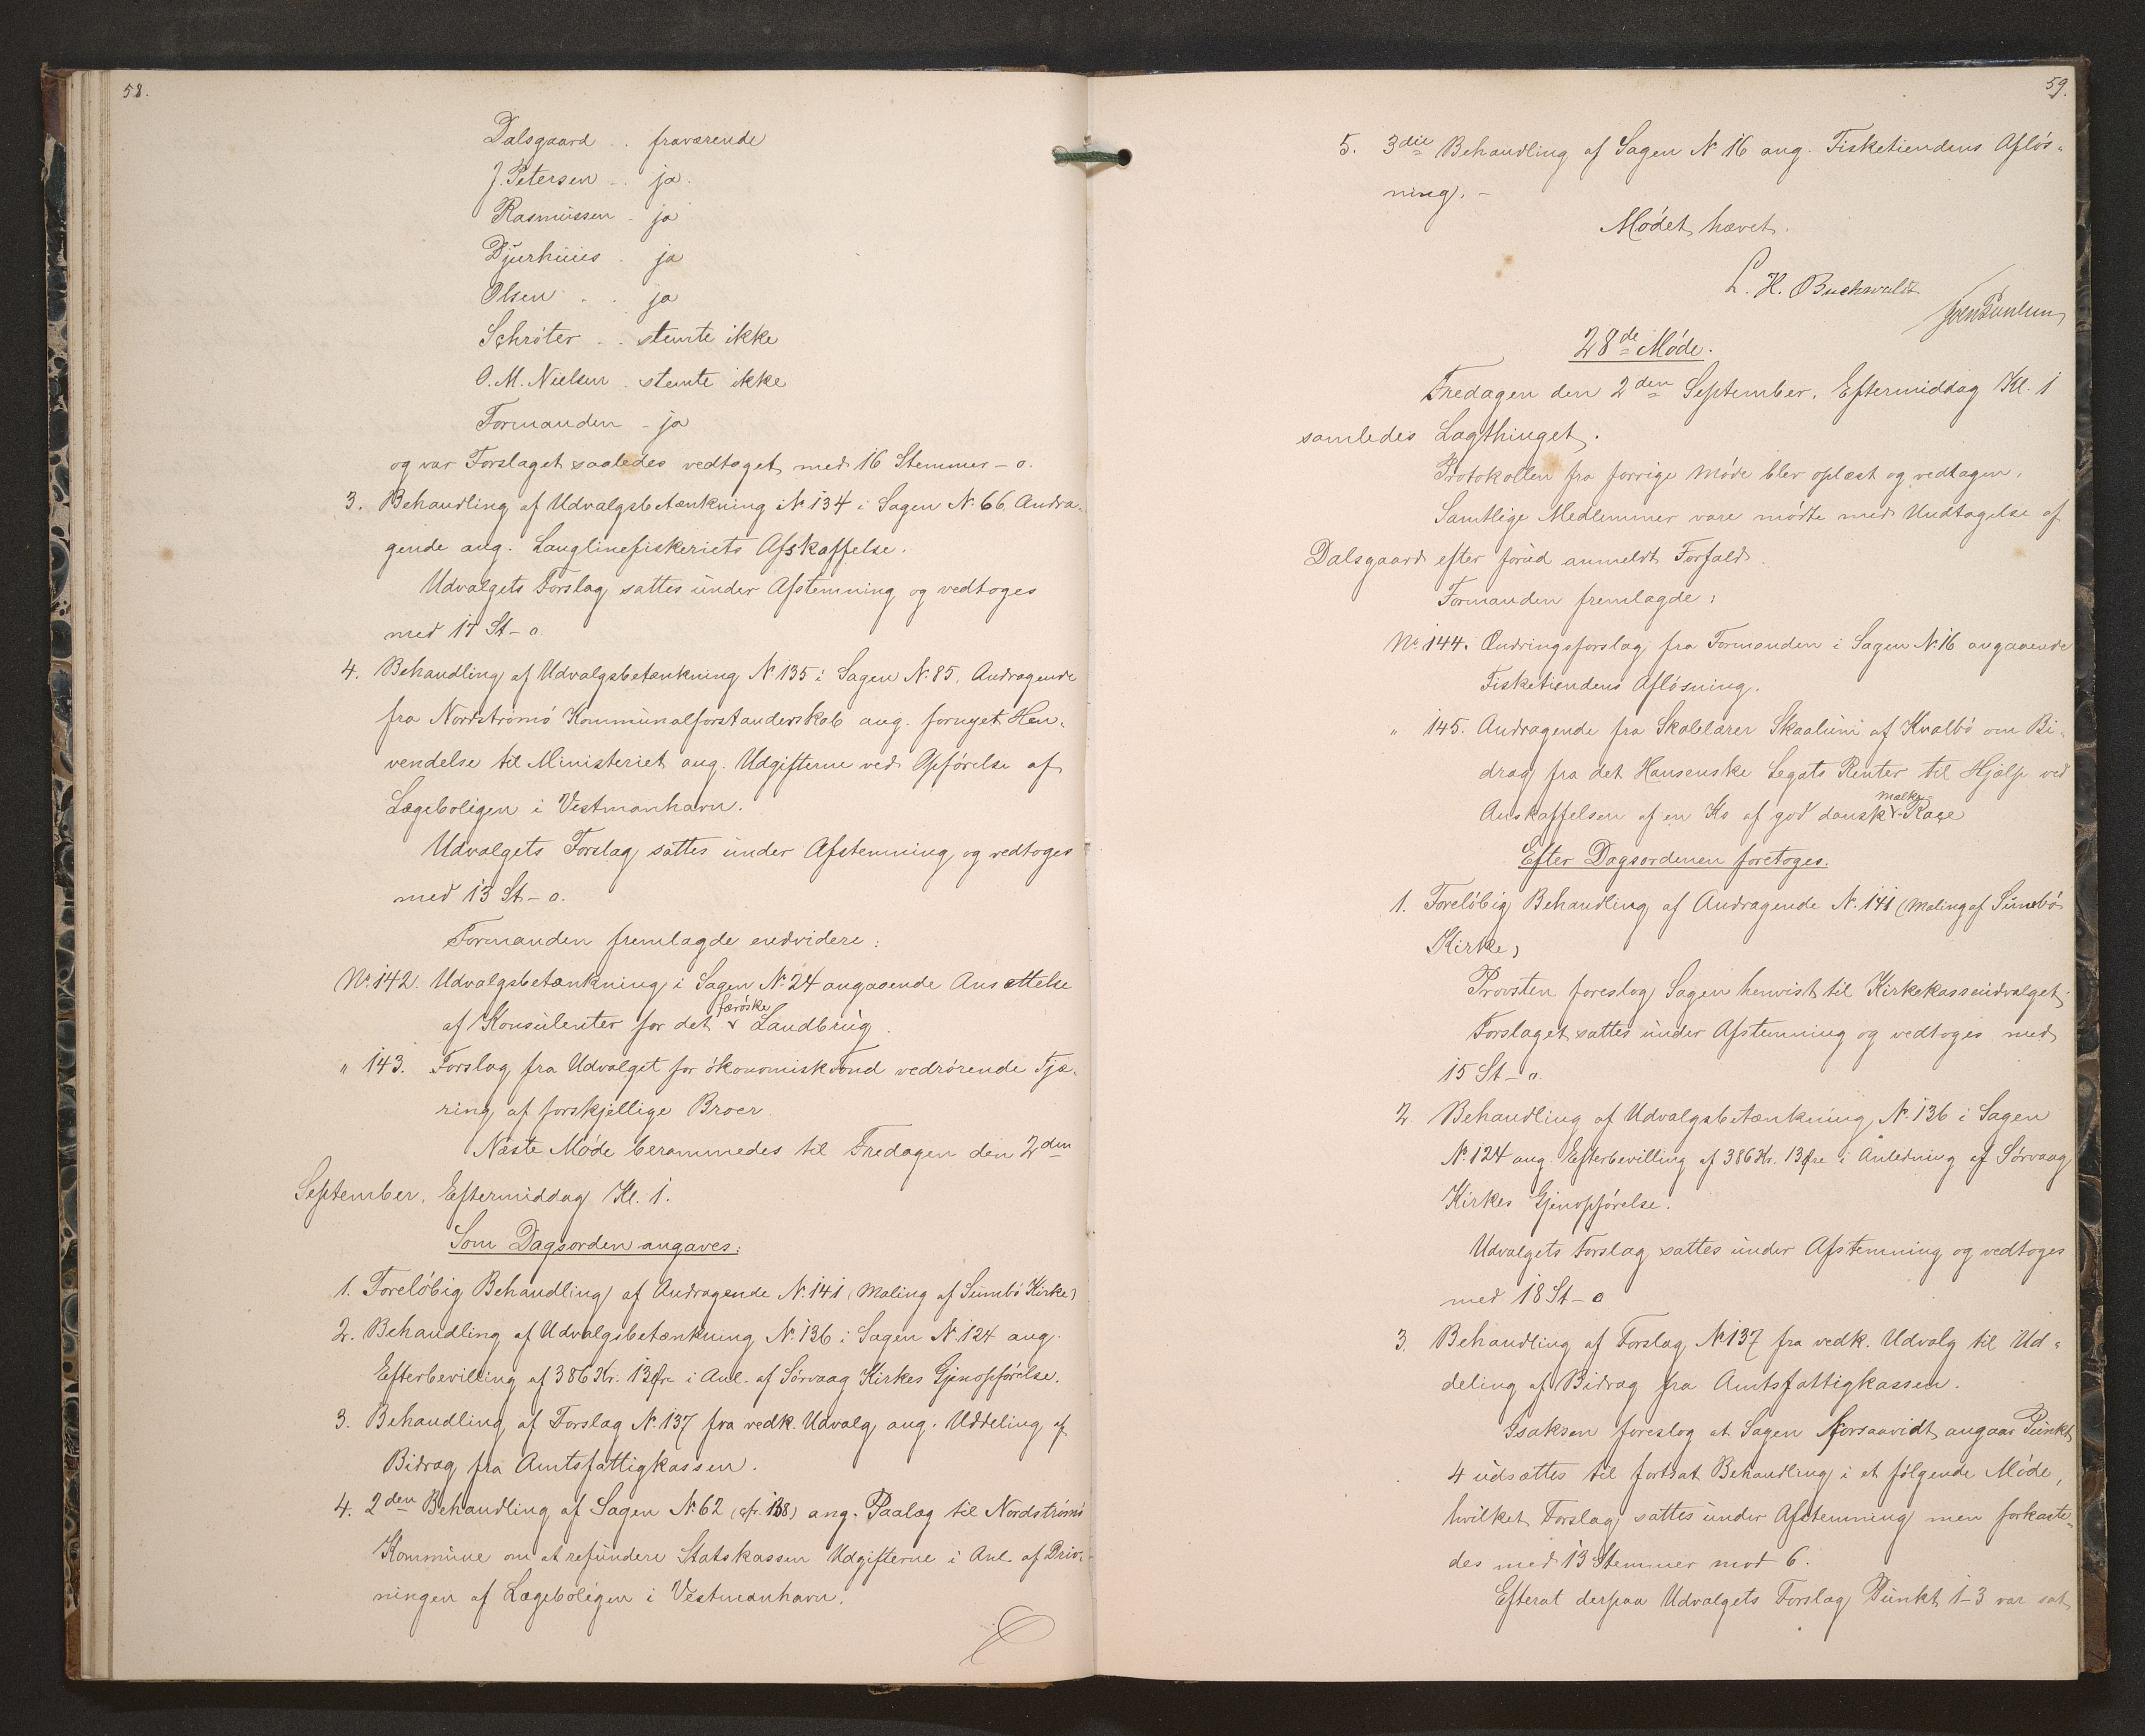 58.
Dalsgaard . . fraværende
J. Petersen . . ja.
Rasmussen . ja
Djurhuus . ja
Olsen . . ja
Schrøter . . stemte ikke
O. M. Nielsen . stemte ikke
Formanden - ja
og var Forslaget saaledes vedtaget med 16 Stemmer - o.
3. Behandling af Udvalgsbetænkning No 134 i Sagen No. 66, Andra-
gende ang. Langlinefiskeriets Afskaffelse.
Udvalgets Forslag sattes under Afstemning og vedtoges
med 17 St - o.
4. Behandling af Udvalgsbetænkning No 135 i Sagen No. 85, Andragende
fra Nordstrømø Kommunalforstanderskab ang. fornyet Hen-
vendelse til Ministeriet ang. Udgifterne ved Opførelse af
Lægeboligen i Vestmanhavn.
Udvalgets Forslag sattes under Afstemning og vedtoges
med 13 St - o.
Formanden fremlagde endvidere:
No. 142. Udvalgsbetænkning i Sagen No. 24 angaaende Ansættelse
færøske
af Konsulenter for det v Landbrug.
" 143. Forslag fra Udvalget for økonomisk Fond vedrørende Tjæ-
ring af forskjellige Broer.
Næste Møde berammedes til Fredagen den 2den
September, Eftermiddag Kl. 1.
Som Dagsorden angaves:
1. Foreløbig Behandling af Andragende No. 141 (Maling af Sumbø Kirke)
2. Behandling af Udvalgsbetænkning No. 136 i Sagen No. 124 ang.
Efterbevilling af 386 Kr. 13 Øre i Anl. af Sørvaag Kirkes Gjenopførelse.
3. Behandling af Forslag No. 137 fra vedk. Udvalg ang. Uddeling af
Bidrag fra Amtsfattigkassen.
4. 2den Behandling af Sagen No 62 (cfr. 138) ang. Paalæg til Nordstrømø
Kommune om at refundere Statskassen Udgifterne i Anl. af
ningen af Lægeboligen i Vestmanhavn.
59.
5. 3die Behandling af Sagen No 16 ang. Fisketiendens Afløs-
ning. -
Mødet hævet.
L. H. Buchwaldt
28de Møde.
Fredagen den 2den September, Eftermiddag Kl. 1
samledes Lagthinget.
Protokollen fra forrige Møde blev oplæst og vedtagen.
Samtlige Medlemmer vare mødte med Undtagelse af
Dalsgaard efter forud anmeldt Forfald.
Formanden fremlagde:
No. 144. Ændringsforslag fra Formanden i Sagen No. 16 angaaende
Fisketiendens Afløsning.
" 145. Andragende fra Skolelærer Skaalum af Kvalbø om Bi-
drag fra det Hansenske Legats Renter til Hjælp ved
Malke-
Anskaffelsen af en Ko af god dansk v-Race
Efter Dagsordenen foretoges:
1. Foreløbig Behandling af Andragende No. 141 (Maling af Sumbø
Kirke)
Provsten foreslog Sagen henvist til Kirkekasseudvalget.
Forslaget sattes under Afstemning og vedtoges med
15 St - o.
2. Behandling af Udvalgsbetænkning No. 136 i Sagen
No. 124 ang. Efterbevilling af 386 Kr. 13 Øre i Anledning af Sørvaag
Kirkes Gjenopførelse.
Udvalgets Forslag sattes under Afstemning og vedtoges
med 18 St - o
3. Behandling af Forslag No 137 fra vedk. Udvalg til Ud-
deling af Bidrag fra Amtsfattigkassen.
Isaksen foreslog at Sagen forsaavidt angaar Punkt
4 udsættes til fortsat Behandling i et følgende Møde,
hvilket Forslag sattes under Afstemning men forkaste-
des med 13 Stemmer mod 6.
Efterat derpaa Udvalgets Forslag Punkt 1-3 var sat